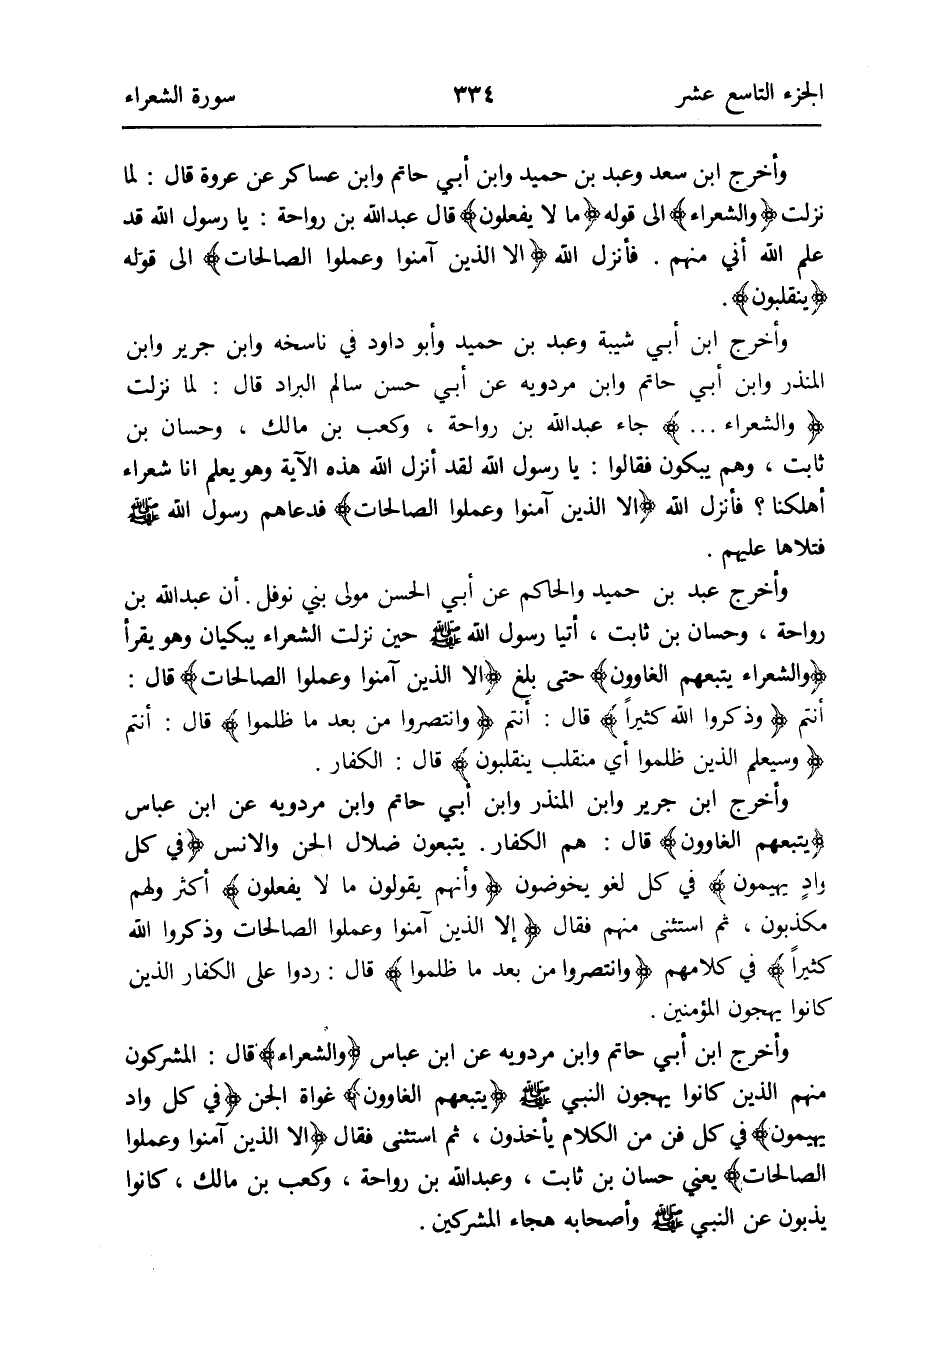 الجزء التاسع عشر ٣٣٤ سورة الشعراء
وأخرج ابن سعد وعبد بن حميد وابن أبي حاتم وابن عساكر عن عروة قال : لما
نزلت ﴿والشعراء﴾ الى قوله ﴿ما لا يفعلون﴾ قال عبدالله بن رواحة : يا رسول الله قد
علم الله أني منهم . فأنزل الله ﴿الا الذين آمنوا وعملوا الصالحات﴾ الى قوله
﴿ينقلبون﴾ .
وأخرج ابن أبي شيبة وعبد بن حميد وأبو داود في ناسخه وابن جرير وابن
المنذر وابن أبي حاتم وابن مردويه عن أبي حسن سالم البراد قال : لما نزلت
﴿ والشعراء ... ﴾ جاء عبدالله بن رواحة ، وكعب بن مالك ، وحسان بن
ثابت ، وهم يبكون فقالوا : يا رسول الله لقد أنزل الله هذه الآية وهو يعلم انا شعراء
أهلكنا ؟ فأنزل الله ﴿الا الذين آمنوا وعملوا الصالحات﴾ فدعاهم رسول الله ﷺ
فتلاها عليهم .
وأخرج عبد بن حميد والحاكم عن أبي الحسن مولى بني نوفل . أن عبدالله بن
رواحة ، وحسان بن ثابت ، أتيا رسول الله ﷺ حين نزلت الشعراء يبكيان وهو يقرأ
﴿والشعراء يتبعهم الغاوون﴾ حتى بلغ ﴿الا الذين آمنوا وعملوا الصالحات﴾ قال :
أنتم ﴿ وذكروا الله كثيراً ﴾ قال : أنتم ﴿ وانتصروا من بعد ما ظلموا ﴾ قال : أنتم
﴿ وسيعلم الذين ظلموا أي منقلب ينقلبون ﴾ قال : الكفار .
وأخرج ابن جرير وابن المنذر وابن أبي حاتم وابن مردويه عن ابن عباس
﴿يتبعهم الغاوون﴾ قال : هم الكفار . يتبعون ضلال الجن والانس ﴿في كل
وادٍ يهيمون ﴾ في كل لغو يخوضون ﴿ وأنهم يقولون ما لا يفعلون ﴾ أكثر ولهم
مكذبون ، ثم استثنى منهم فقال ﴿ إلا الذين آمنوا وعملوا الصالحات وذكروا الله
كثيراً ﴾ في كلامهم ﴿وانتصروا من بعد ما ظلموا ﴾ قال : ردوا على الكفار الذين
كانوا يهجون المؤمنين .
وأخرج ابن أبي حاتم وابن مردويه عن ابن عباس ﴿والشعراء﴾ قال : المشركون
منهم الذين كانوا يهجون النبي ﷺ ﴿يتبعهم الغاوون﴾ غواة الجن ﴿في كل واد
يهيمون﴾ في كل فن من الكلام يأخذون ، ثم استثنى فقال ﴿الا الذين آمنوا وعملوا
الصالحات﴾ يعني حسان بن ثابت ، وعبدالله بن رواحة ، وكعب بن مالك ، كانوا
يذبون عن النبي ﷺ وأصحابه هجاء المشركين .